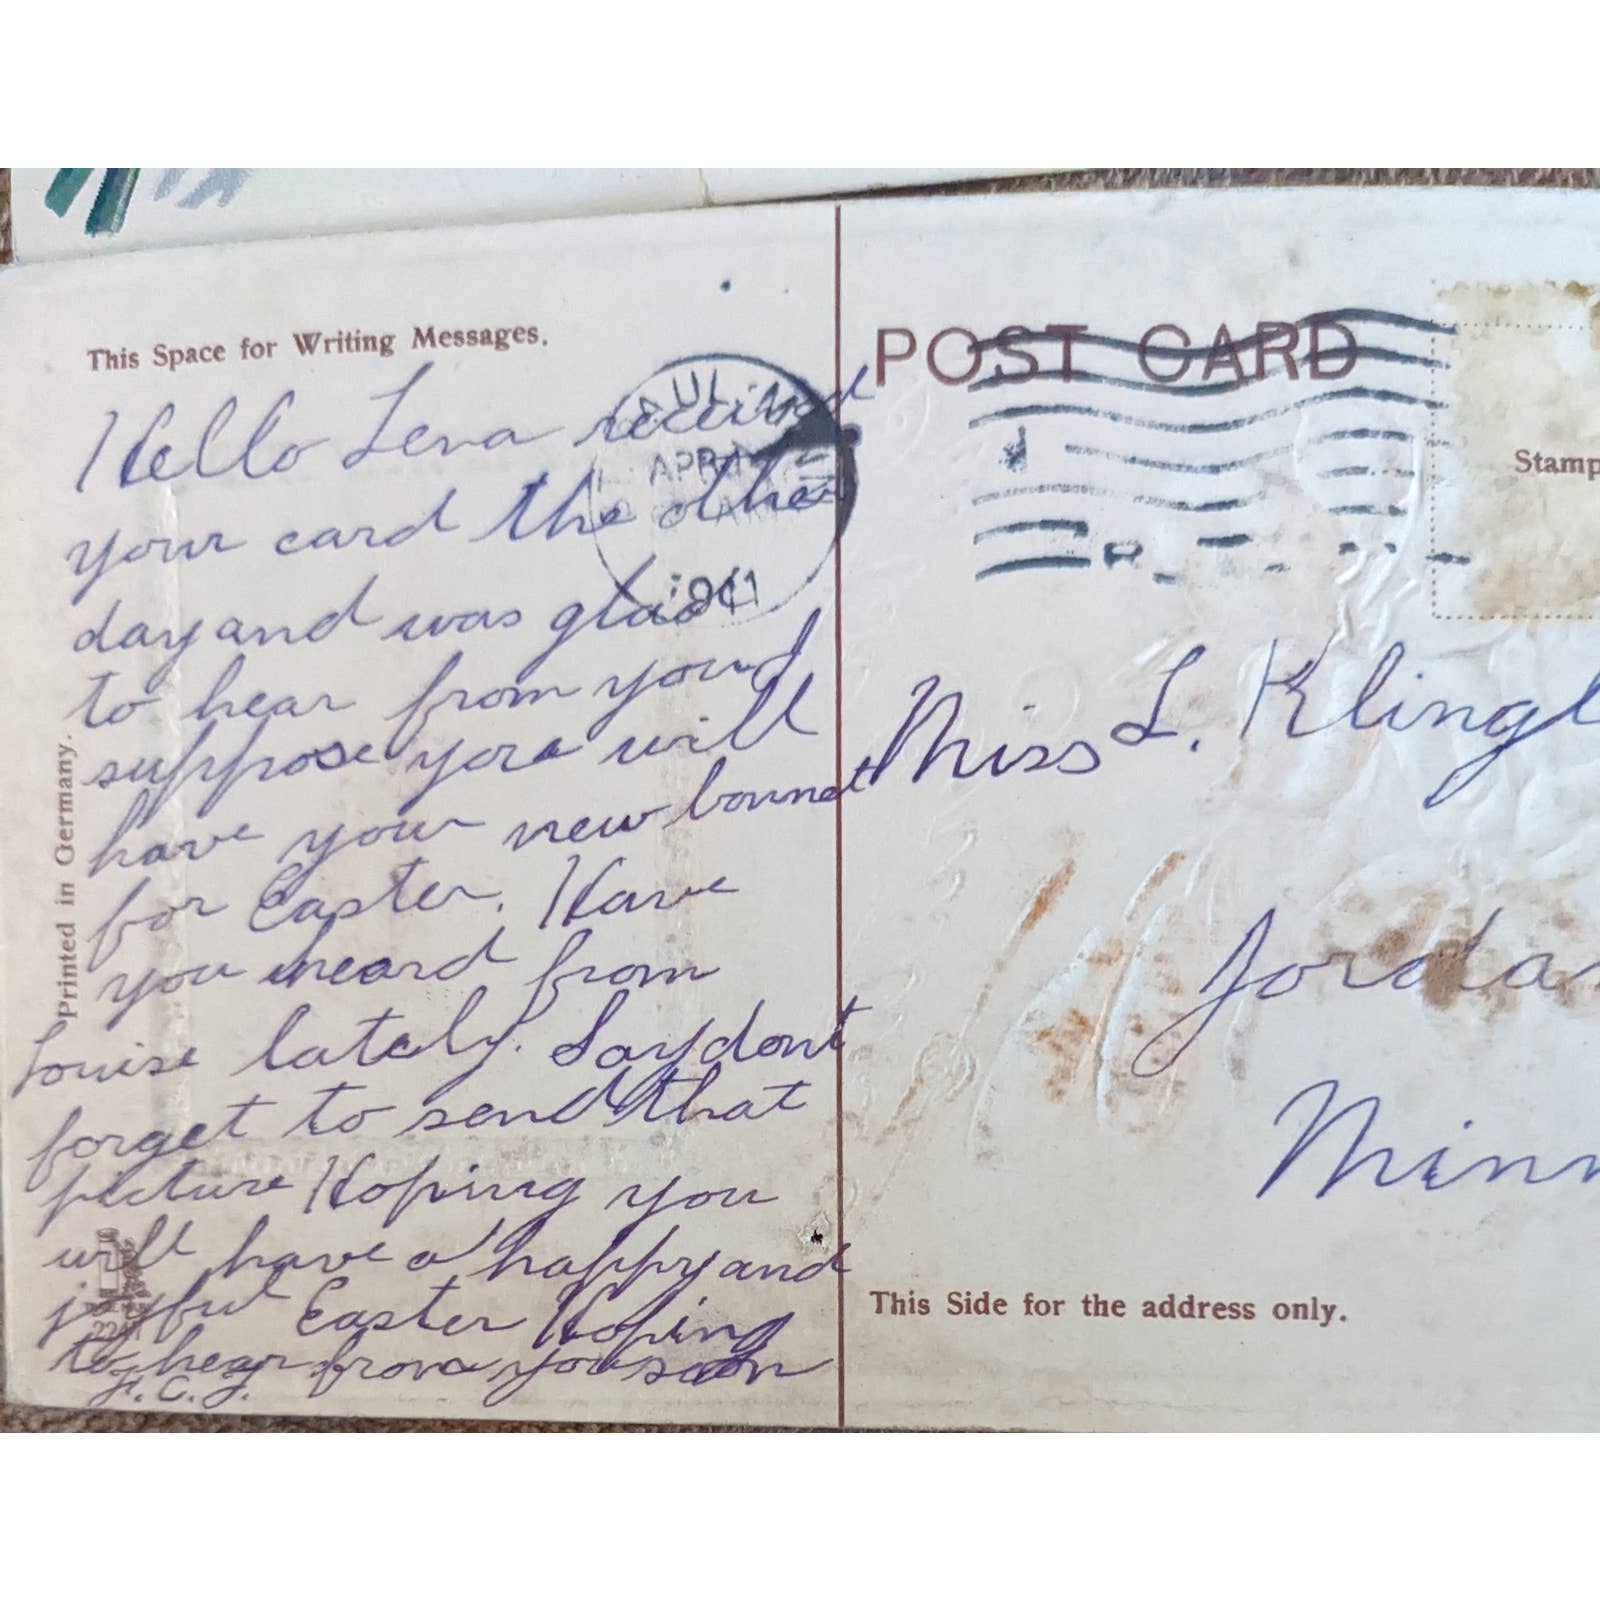 This Space for Writing Messages.
Hello Lena received
your card the other
day and was glad
to hear from you I
suppose you will
have your new bonnet
for Easter. Have
you heard from
Louise lately. Say dont
forget to send that
picture Hoping you
will have a happy and
joyful Easter Hoping
to hear from you soon
F. C. J.
Printed in Germany.
APR
1911
POST CARD
Stamp
Miss L. Klingl
Jorda
Minn
This Side for the address only.